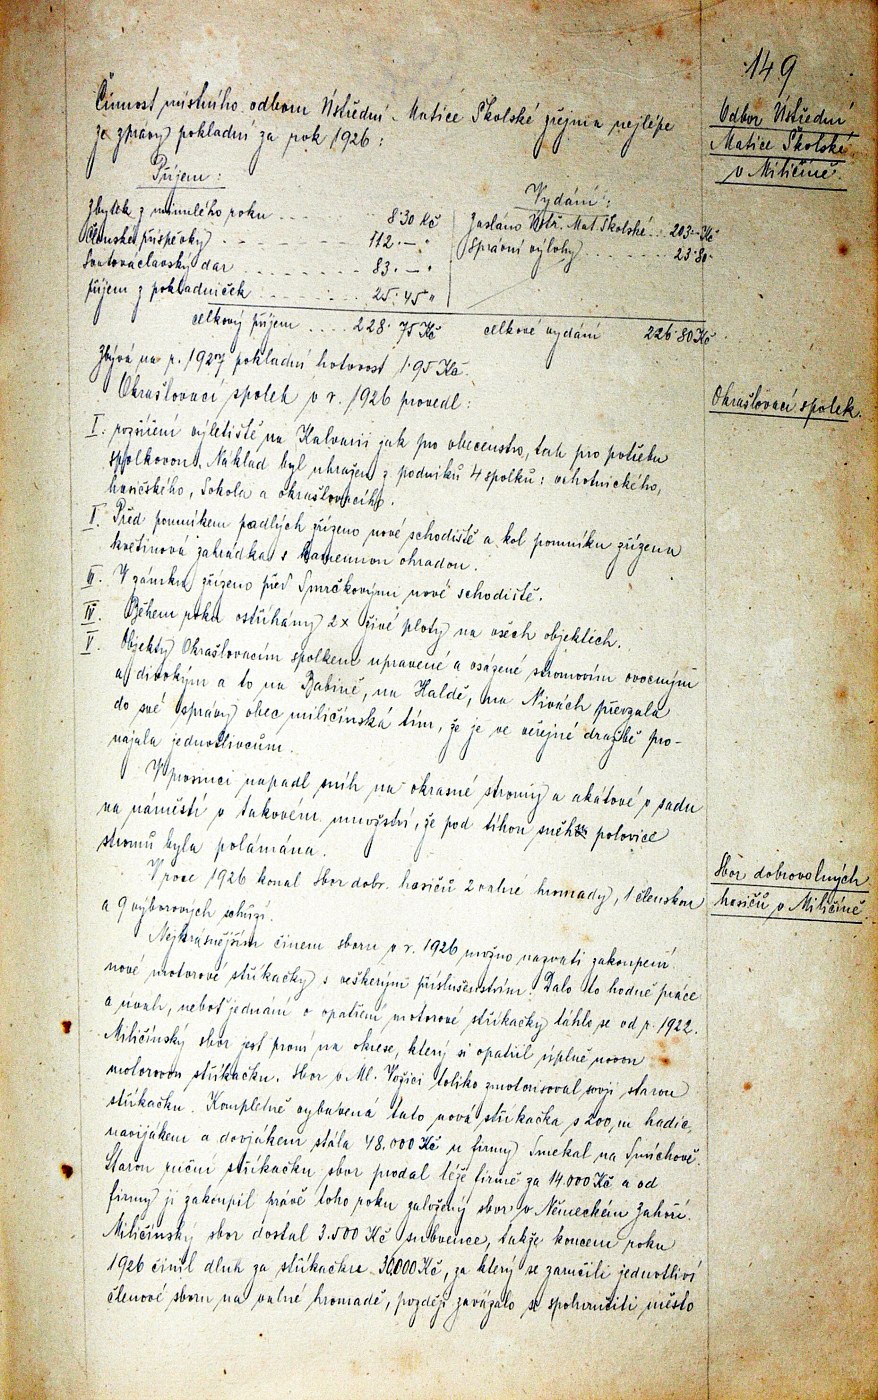 149
Činnost místního odboru Ústřední Matice Školské zřejma nejlépe
ze zprávy pokladní za rok 1926:
Odbor Ústřední
Matice Školské
v Miličíně.
Příjem:
Zbytek z minulého roku . . . . 8·30 Kč
Členské příspěvky . . . . 112.— "
Svatováclavský dar . . . . 83.— "
příjem z pokladniček . . . . 25·45 "
celkový příjem . . . . 228·75 Kč
Vydání:
Zasláno Ústř. Mat. Školské . . 203·— Kč
Správní výlohy . . . . 23·80·
celkové vydání 226·80 Kč
Zbývá na r. 1927 pokladní hotovost 1·95 Kč.
Okrašlovací spolek v r. 1926 provedl:
Okrašlovací spolek.
I. rozšíření výletiště na Kalvarii jak pro obecenstvo, tak pro potřebu
spolkovou. Náklad byl uhražen z podniků 4 spolků: ochotnického,
hasičského, Sokola a okrašlovacího.
I. Před pomníkem padlých zřízeno nové schodiště a kol pomníku zřízena
květinová zahrádka s kamennou ohradou.
III. V zámku zřízeno před Smrčkovými nové schodiště.
IV. Během roku ostříhány 2x živé ploty na všech objektech.
V. Objekty Okrašlovacím spolkem upravené a osázené stromovím ovocným
a divokým a to na Babině, na Haldě, na Nivách převzala
do své správy obec miličínská tím, že je ve veřejné dražbě pro-
najala jednotlivcům.
V prosinci napadl sníh na okrasné stromy a akátové v sadu
na náměstí v takovém množství, že pod tíhou sněhu polovice
stromů byla polámána.
V roce 1926 konal Sbor dobr. hasičů 2 valné hromady, 1 členskou
a 9 výborových schůzí.
Sbor dobrovolných
hasičů v Miličíně.
Nejkrásnějším činem sboru v r. 1926 možno nazvati zakoupení
nové motorové stříkačky s veškerým příslušenstvím. Dalo to hodně práce
a úvah, neboť jednání o opatření motorové stříkačky táhlo se od r. 1922.
Miličínský sbor jest první na okrese, který si opatřil úplně novou
motorovou stříkačku. Sbor v Ml. Vožici toliko zmotorisoval svoji starou
stříkačku. Kompletně vybavená tato nová stříkačka s 200 m hadic,
navijákem a dovjákem stála 48.000 Kč u firmy Smekal na Smíchově.
Starou ruční stříkačku sbor prodal téže firmě za 14.000 Kč a od
firmy ji zakoupil právě toho roku založený sbor v Německém Záhoří.
Miličínský sbor dostal 3.500 Kč subvence, takže koncem roku
1926 činil dluh za stříkačku 30.000 Kč, za který se zaručili jednotliví
členové sboru na valné hromadě, později zavázalo se spoluručiti město